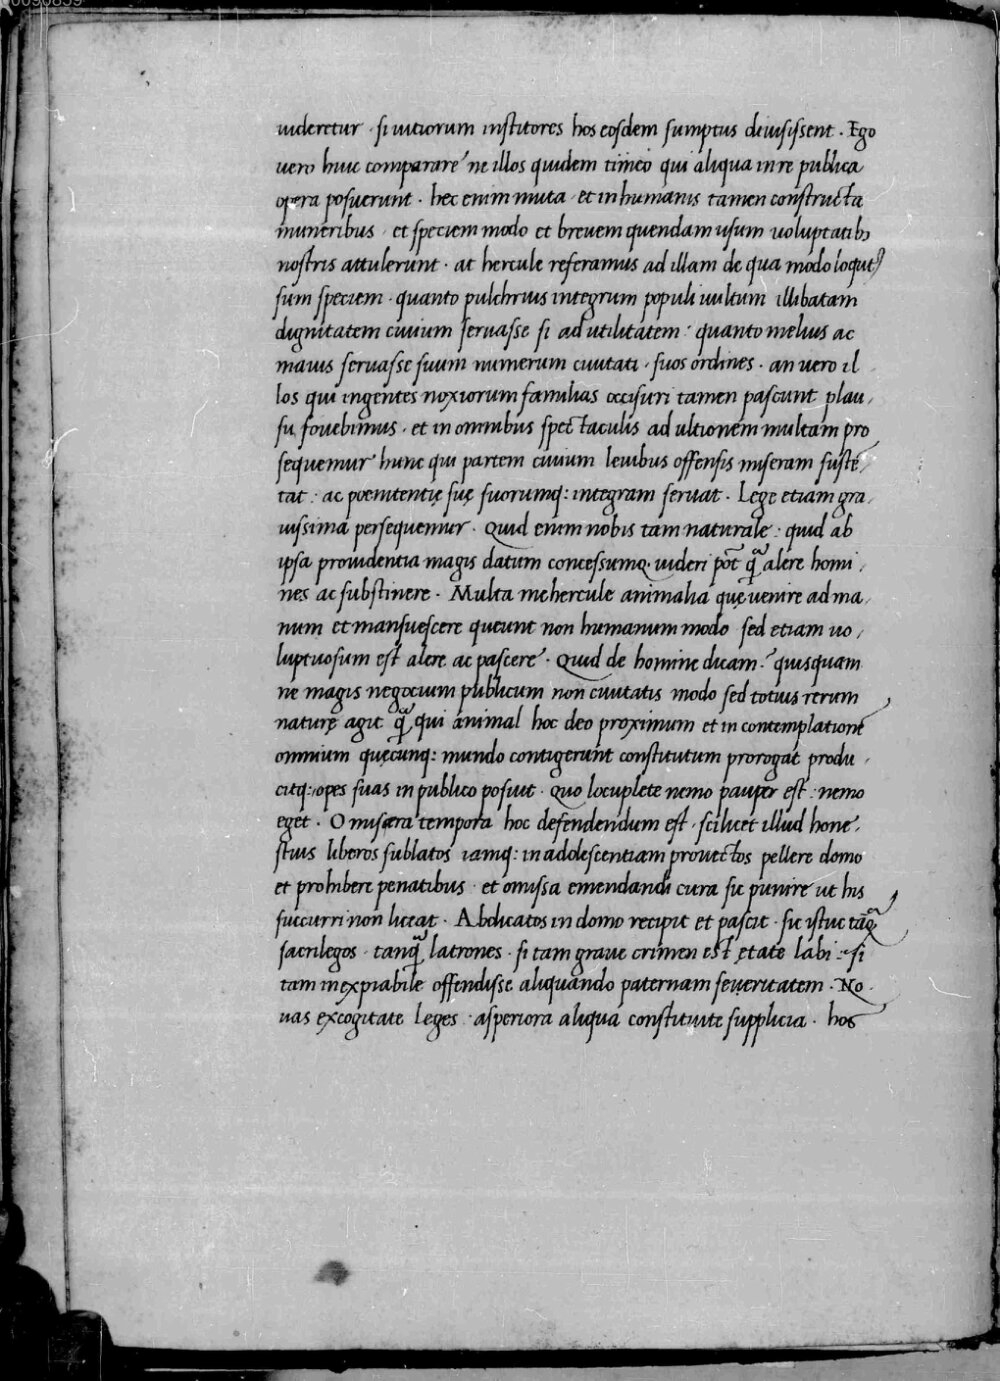 00090859
uideretur · si uitiorum institores hos eosdem sumptus diuisissent · Ego
uero huic comparare ne illos quidem timeo qui aliqua in re publica
opera posuerunt · hec enim muta · et inhumanis tamen constructa
muneribus · et speciem modo et breuem quendam usum uoluptatibꝫ
nostris attulerunt · at hercule referamus ad illam de qua modo loqutꝰ
sum speciem · quanto pulchrius integrum populi uultum illibatam
dignitatem ciuium seruasse si ad utilitatem : quanto melius ac
maius seruasse suum numerum ciuitati · suos ordines · an uero il
los qui ingentes noxiorum familias occisuri tamen pascunt plau,
su fouebimus · et in omnibus spectaculis ad ultionem multam pro
sequemur hunc qui partem ciuium leuibus offensis miseram suste,
tat : ac poenitentię suę suorumq: integram seruat · Lege etiam gra,
uissima persequemur · Quid enim nobis tam naturale : quid ab
ipsa prouidentia magis datum concessumq. uideri pōt q̃ alere homi,
nes ac substinere · Multa mehercule animalia quę uenire ad ma,
num et mansuescere queunt non humanum modo sed etiam uo,
luptuosum est alere ac pascere · Quid de homine dicam : quisquam
ne magis negocium publicum non ciuitatis modo sed totius rerum
naturę agit q̃ qui animal hoc deo proximum et in contemplatione
omnium quęcunq: mundo contigerunt constitutum prorogat produ,
citq: opes suas in publico posuit · Quo locuplete nemo pauper est : nemo
eget · O misera tempora hoc defendendum est · scilicet illud hone,
stius liberos sublatos iamq: in adolescentiam prouectos pellere domo
et prohibere penatibus · et omissa emendandi cura sic punire ut his
succurri non liceat · Abdicatos in domo recipit et pascit · sic istuc tāq̃
sacrilegos · tanq̃ latrones · si tam graue crimen est ętate labi : si
tam inexpiabile offendisse aliquando paternam seueritatem · No,
uas excogitate leges · asperiora aliqua constituite supplicia · hos